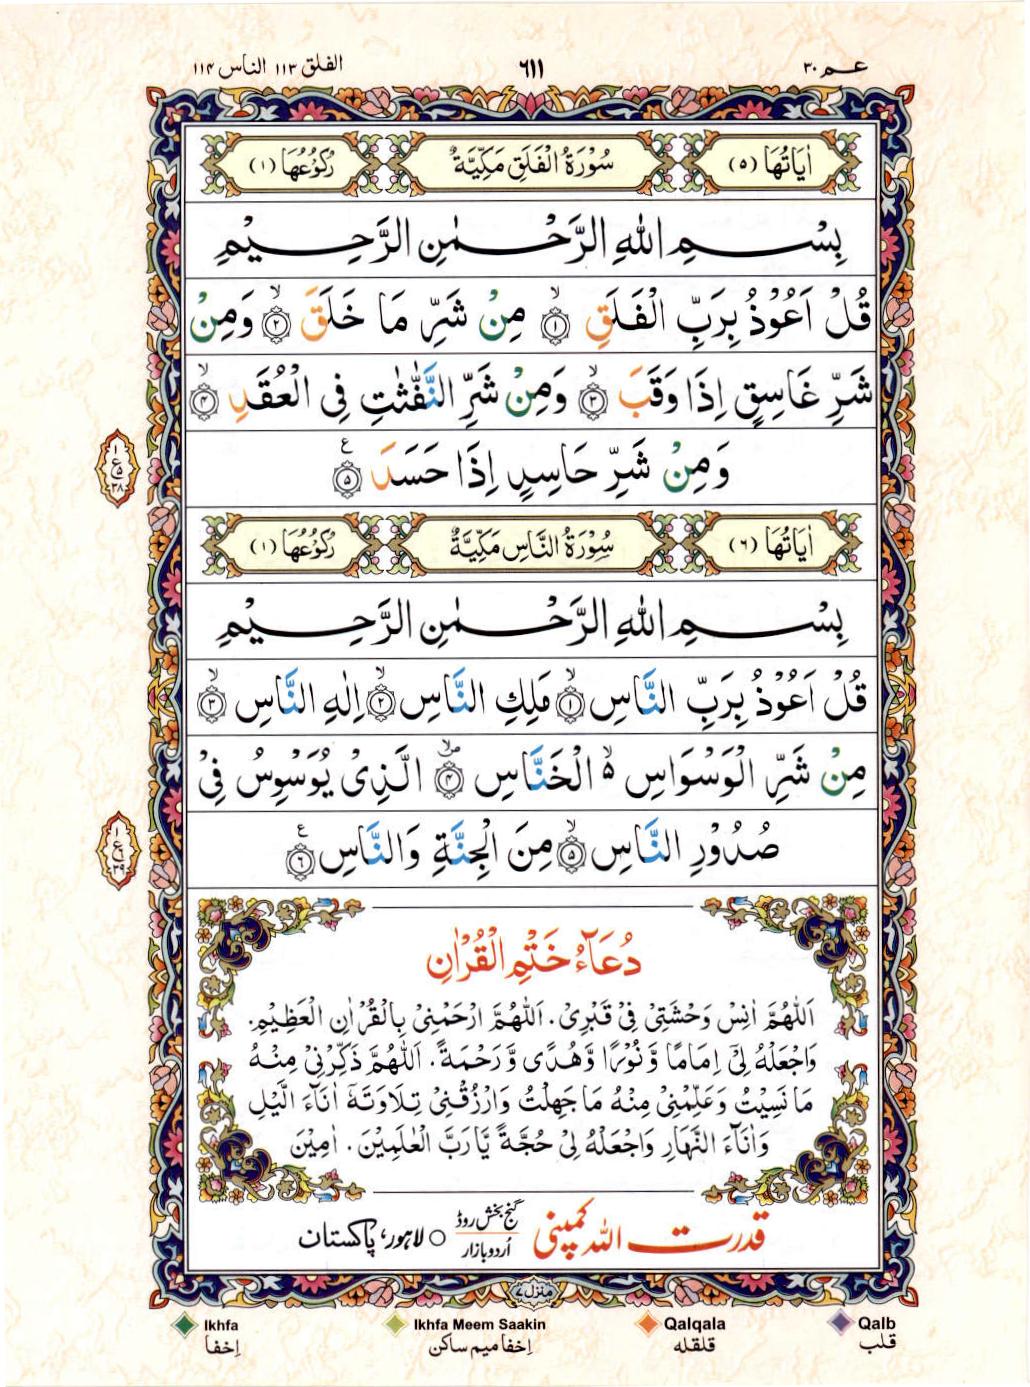 عـم ٣٠
٦١١
الفلق ١١٣ الناس ١١٤
اٰيَاتُهَا (٥)
سُوْرَةُ الْفَلَقِ مَكِّيَّةٌ
رُكُوْعُهَا (١)
بِسْمِ اللّٰهِ الرَّحْمٰنِ الرَّحِيْمِ
قُلْ اَعُوْذُ بِرَبِّ الْفَلَقِ ۙ﴿١﴾ مِنْ شَرِّ مَا خَلَقَ ۙ﴿٢﴾ وَمِنْ
شَرِّ غَاسِقٍ اِذَا وَقَبَ ۙ﴿٣﴾ وَمِنْ شَرِّ النَّفّٰثٰتِ فِى الْعُقَدِ ۙ﴿٤﴾
وَمِنْ شَرِّ حَاسِدٍ اِذَا حَسَدَ ع﴿٥﴾
١
ع
٥
٣٨
اٰيَاتُهَا (٦)
سُوْرَةُ النَّاسِ مَكِّيَّةٌ
رُكُوْعُهَا (١)
بِسْمِ اللّٰهِ الرَّحْمٰنِ الرَّحِيْمِ
قُلْ اَعُوْذُ بِرَبِّ النَّاسِ ۙ﴿١﴾ مَلِكِ النَّاسِ ۙ﴿٢﴾ اِلٰهِ النَّاسِ ۙ﴿٣﴾
مِنْ شَرِّ الْوَسْوَاسِ ۵ۙ الْخَنَّاسِ ۪ۙ﴿٤﴾ الَّذِىْ يُوَسْوِسُ فِىْ
صُدُوْرِ النَّاسِ ۙ﴿٥﴾ مِنَ الْجِنَّةِ وَالنَّاسِ ع﴿٦﴾
١
ع
٦
٣٩
دُعَآءُ خَتْمِ الْقُرْاٰنِ
اَللّٰهُمَّ اٰنِسْ وَحْشَتِىْ فِىْ قَبْرِىْ. اَللّٰهُمَّ ارْحَمْنِىْ بِالْقُرْاٰنِ الْعَظِيْمِ.
وَاجْعَلْهُ لِىْٓ اِمَامًا وَّنُوْرًا وَّهُدًى وَّرَحْمَةً. اَللّٰهُمَّ ذَكِّرْنِىْ مِنْهُ
مَا نَسِيْتُ وَعَلِّمْنِىْ مِنْهُ مَا جَهِلْتُ وَارْزُقْنِىْ تِلَاوَتَهٗٓ اٰنَآءَ الَّيْلِ
وَاٰنَآءَ النَّهَارِ وَاجْعَلْهُ لِىْ حُجَّةً يَّا رَبَّ الْعٰلَمِيْنَ. اٰمِيْنَ
قدرت اللہ کمپنی
گنج بخش روڈ
اُردو بازار
○ لاہور، پاکستان
منزل ٧
Ikhfa
Ikhfa Meem Saakin
Qalqala
Qalb
اِخفا
اِخفا میم ساکن
قلقلہ
قلب